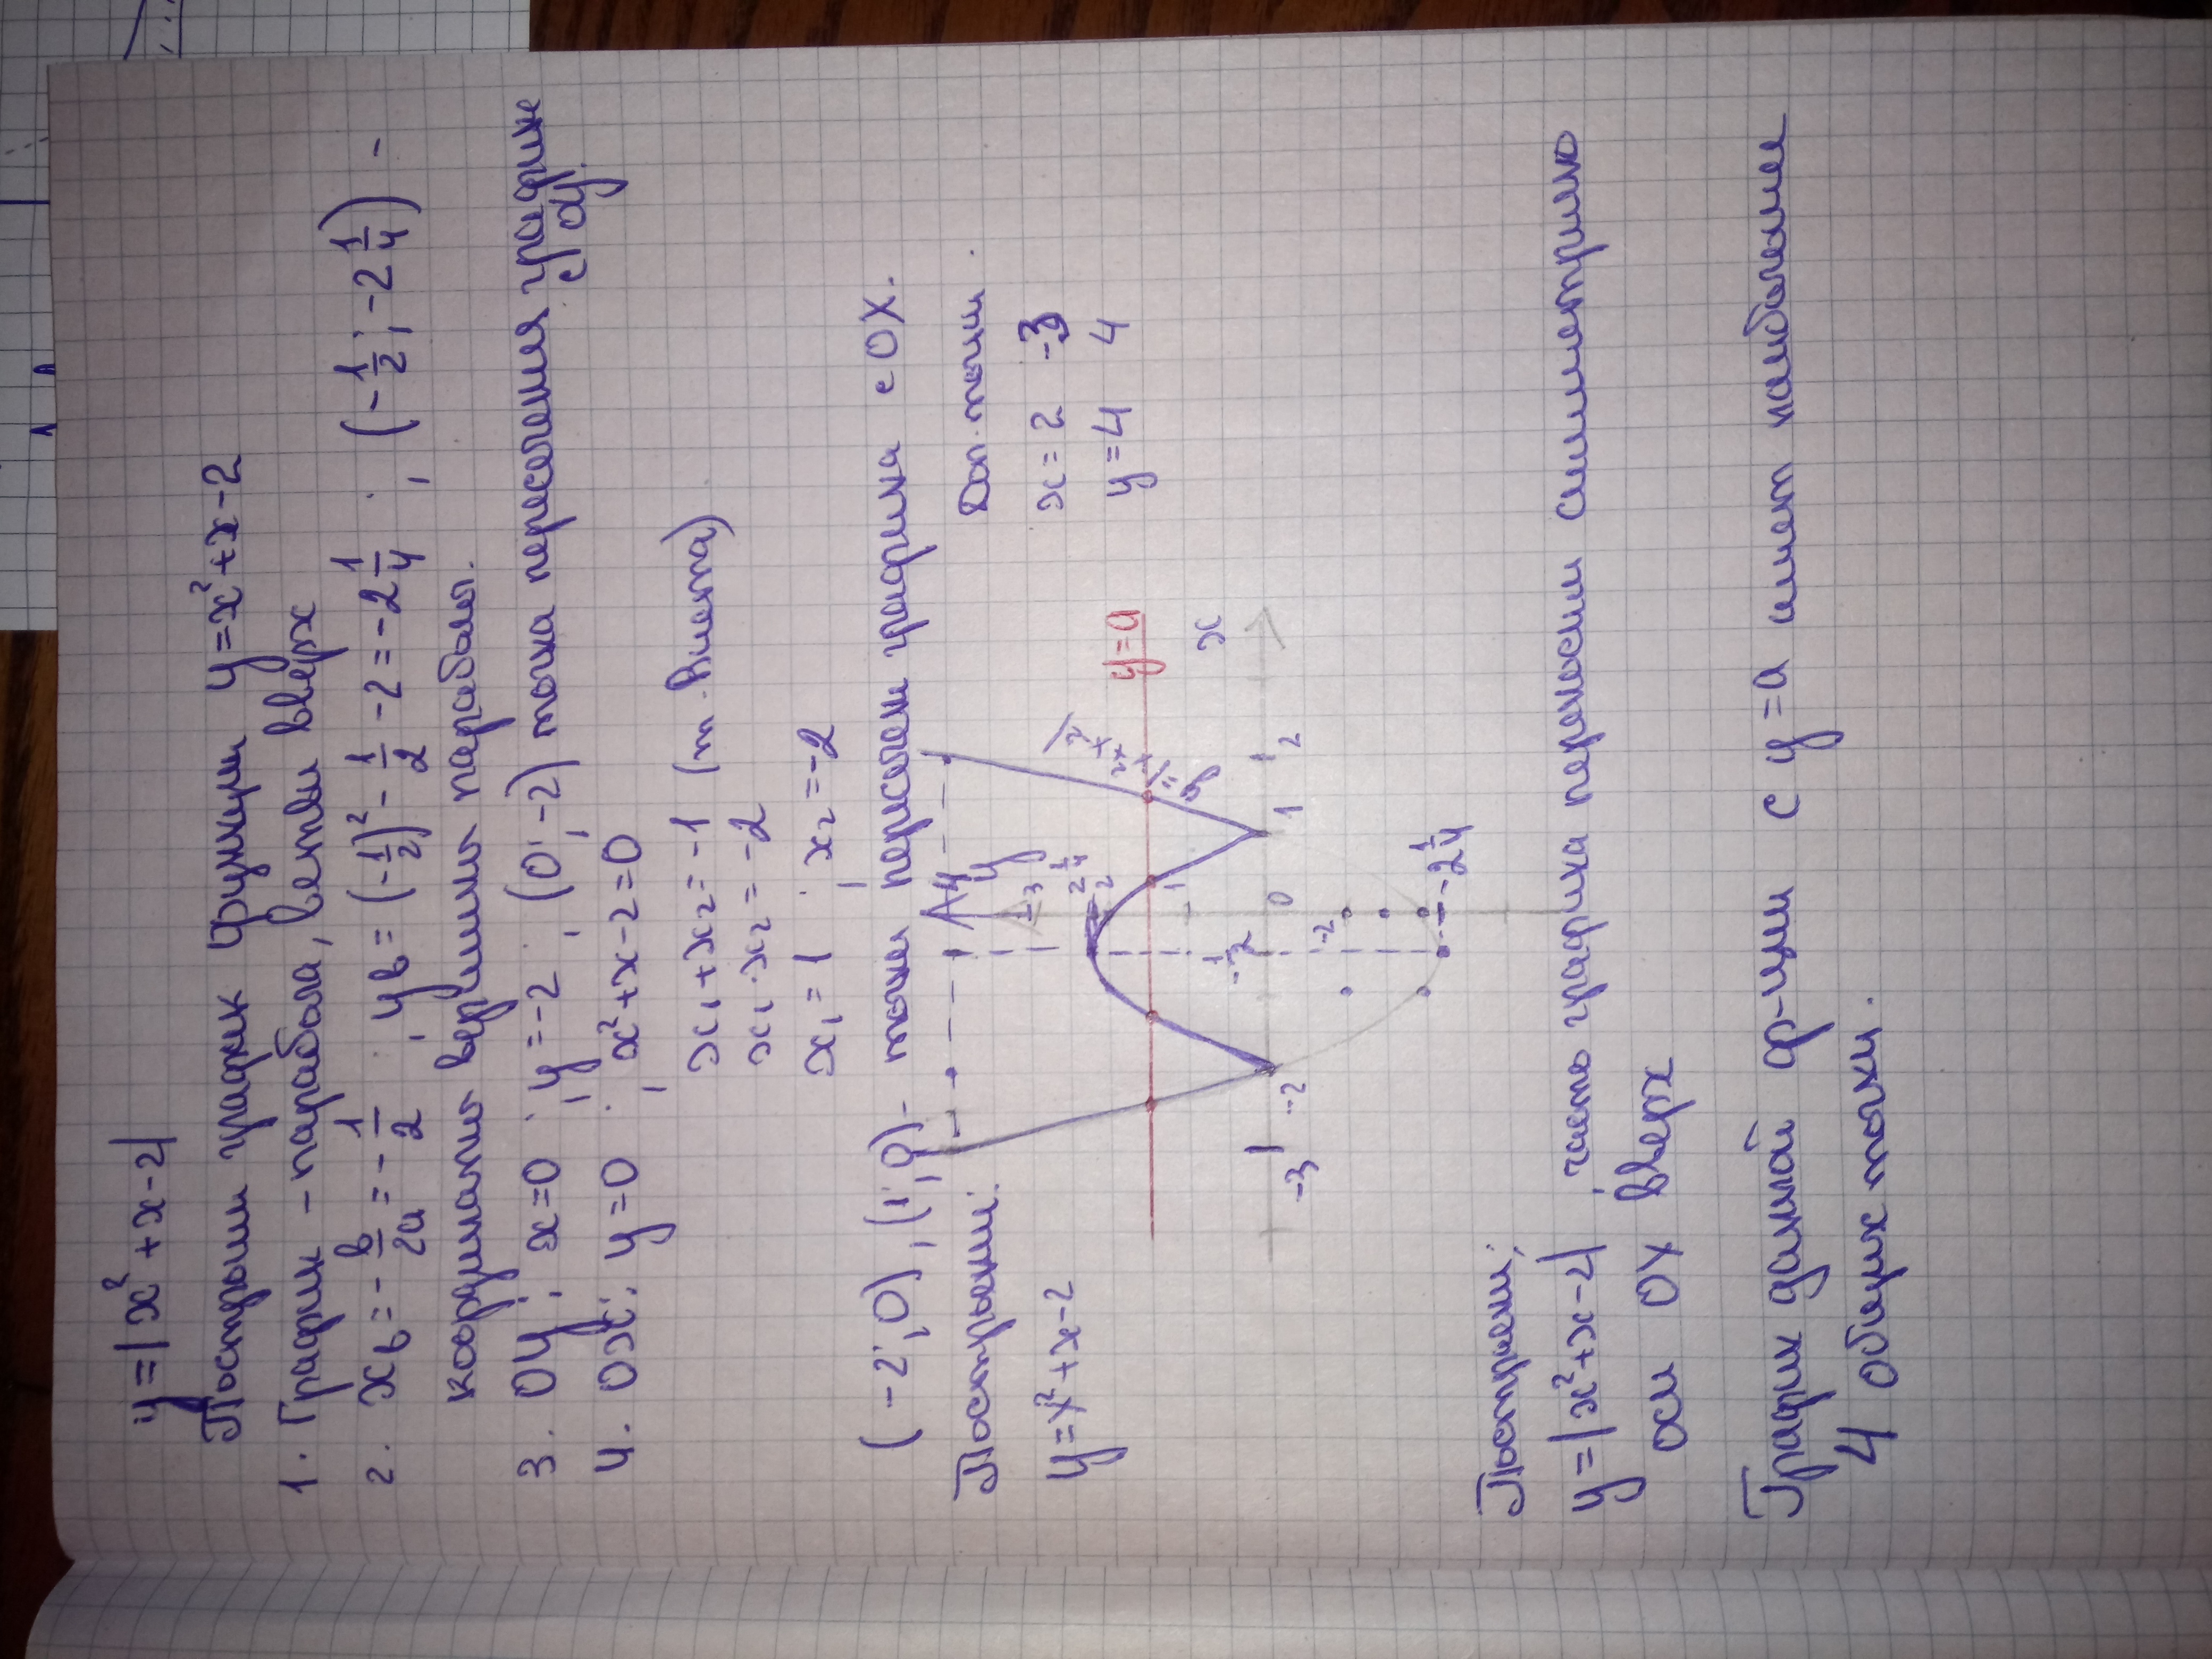 y = |x² + x - 2|
Построим график функции y = x² + x - 2
1. График - парабола, ветви вверх
2. xв = -в/2a = -1/2 ; yв = (-1/2)² - 1/2 - 2 = -2 1/4 ; (-1/2 ; -2 1/4) -
координаты вершины параболы.
3. OY ; x = 0 ; y = -2 ; (0 ; -2) точка пересечения график
с OY.
4. OX ; y = 0 ; x² + x - 2 = 0
x₁ + x₂ = -1 (т. Виета)
x₁ · x₂ = -2
x₁ = 1 ; x₂ = -2
(-2 ; 0) , (1 ; 0) - точки пересечен графика с OX.
Построение: Доп. точки.
y = x² + x - 2 x = 2 -3
y = 4 4
4
y
3
2 1/4
2
y = a
1
x
-3 -2 -1/2 0 1 2
-2
-2 1/4
y = |x² + x - 2|
Построен:
y = |x² + x - 2| ; часть графика переносим симметрично
оси OX вверх
График данной ф-ции с y = a имеет наибольшее
4 общих точки.